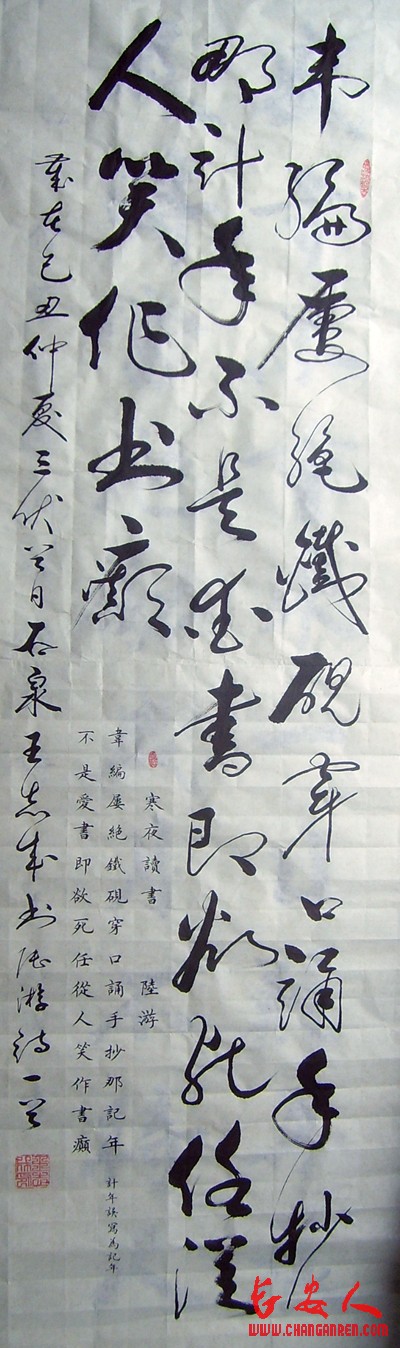 韦編屡絕鐵硯穿口誦手抄
那计年不是爱書即欲死任從
人笑作书癫
寒夜讀書 陸游
韋編屡絕鐵硯穿口誦手抄那記年
不是愛書即欲死任從人笑作書癲
計年誤寫為記年
歲在己丑仲夏三伏之日石泉王志成书陆游诗一首
长安人
WWW.CHANGANREN.COM